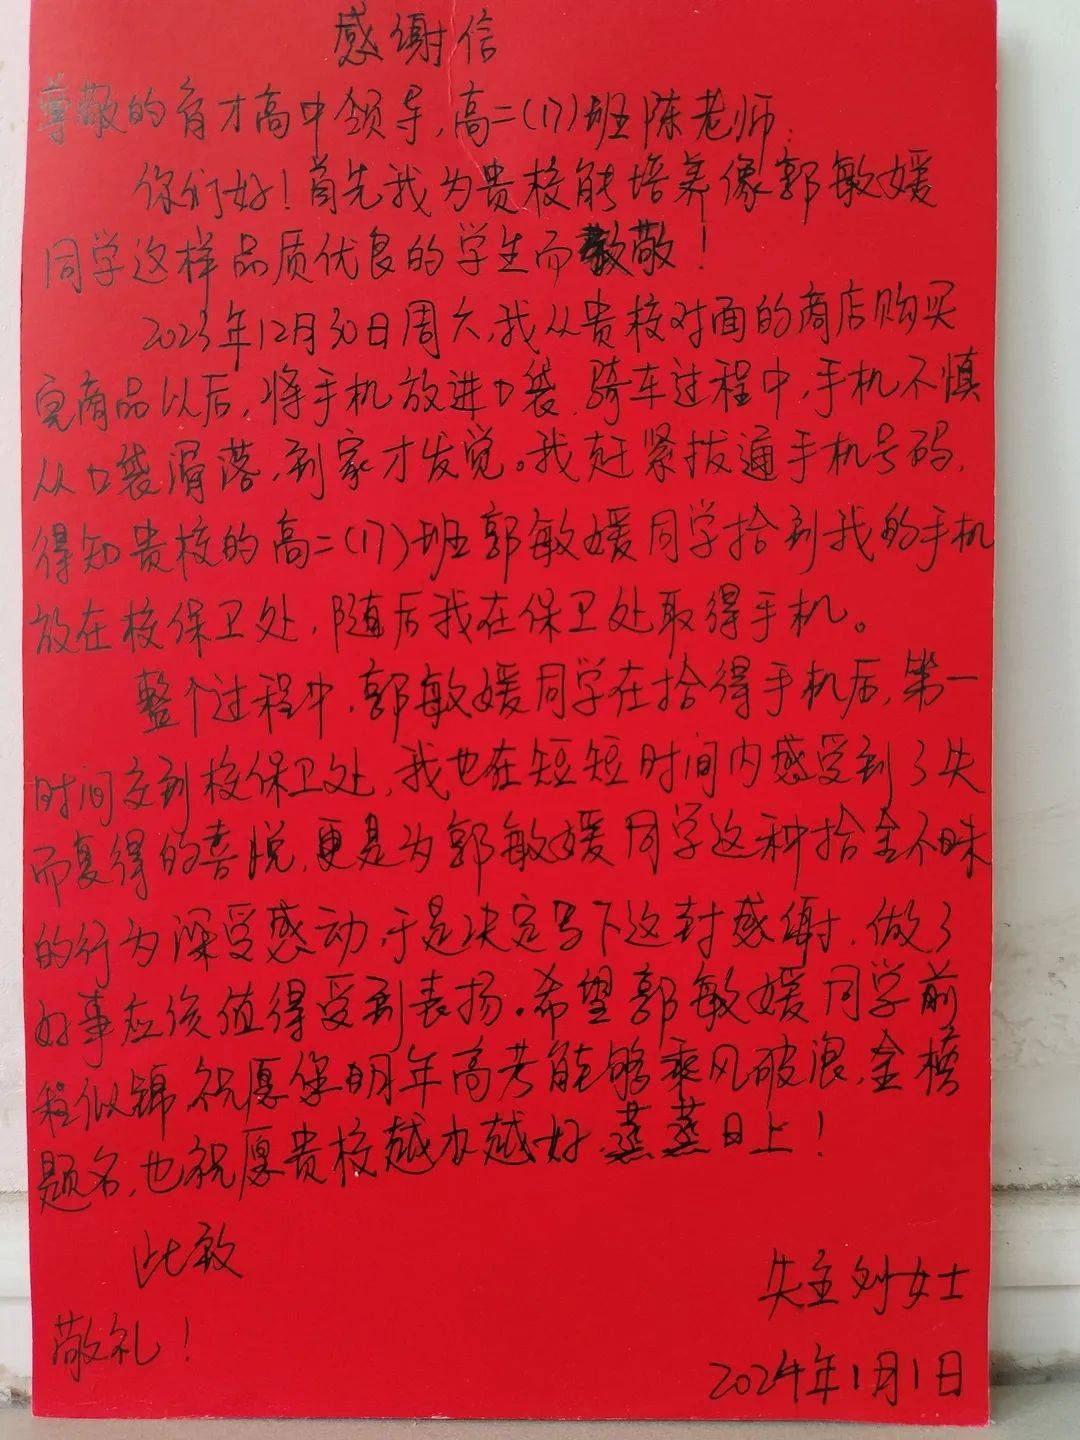 感谢信
尊敬的育才高中领导,高二(17)班陈老师:
你们好!首先我为贵校能培养像郭敏媛
同学这样品质优良的学生而致敬!
2023年12月30日周六,我从贵校对面的商店购买
完商品以后,将手机放进口袋.骑车过程中,手机不慎
从口袋滑落,到家才发觉。我赶紧拨通手机号码,
得知贵校的高二(17)班郭敏媛同学拾到我的手机
放在校保卫处,随后我在保卫处取得手机。
整个过程中,郭敏媛同学在拾得手机后,第一
时间交到校保卫处,我也在短短时间内感受到了失
而复得的喜悦,更是为郭敏媛同学这种拾金不昧
的行为深受感动,于是决定写下这封感谢,做了
好事应该值得受到表扬。希望郭敏媛同学前
程似锦,祝愿您明年高考能够乘风破浪,金榜
题名,也祝愿贵校越办越好,蒸蒸日上!
此致
失主刘女士
敬礼!
2024年1月1日